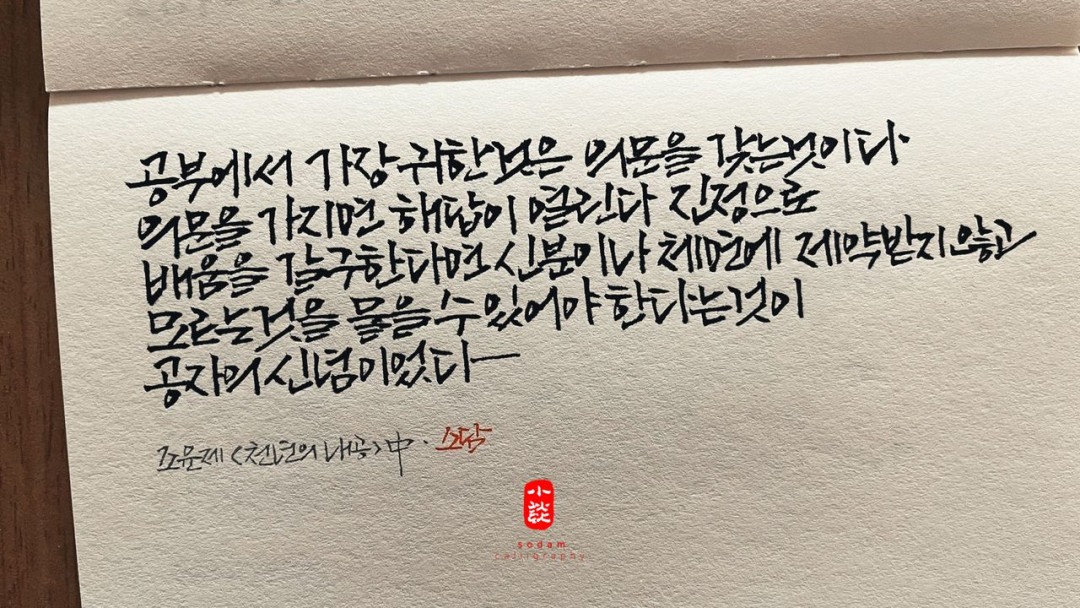 공부에서 가장 귀한것은 의문을 갖는것이다.
의문을 가지면 해답이 열린다 진정으로
배움을 갈구한다면 신분이나 체면에 제약받지않고
모르는것을 물을 수 있어야 한다는것이
공자의 신념이었다
조윤제 <천년의 내공> 中. 소담
小談
sodam
calligraphy